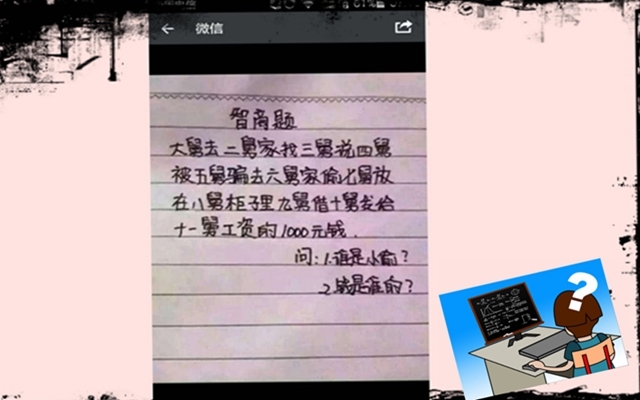 微信
智商题
大舅去二舅家找三舅说四舅
被五舅骗去六舅家偷七舅放
在八舅柜子里九舅借十舅发给
十一舅工资的1000元钱.
问:1.谁是小偷?
2.钱是谁的?
?